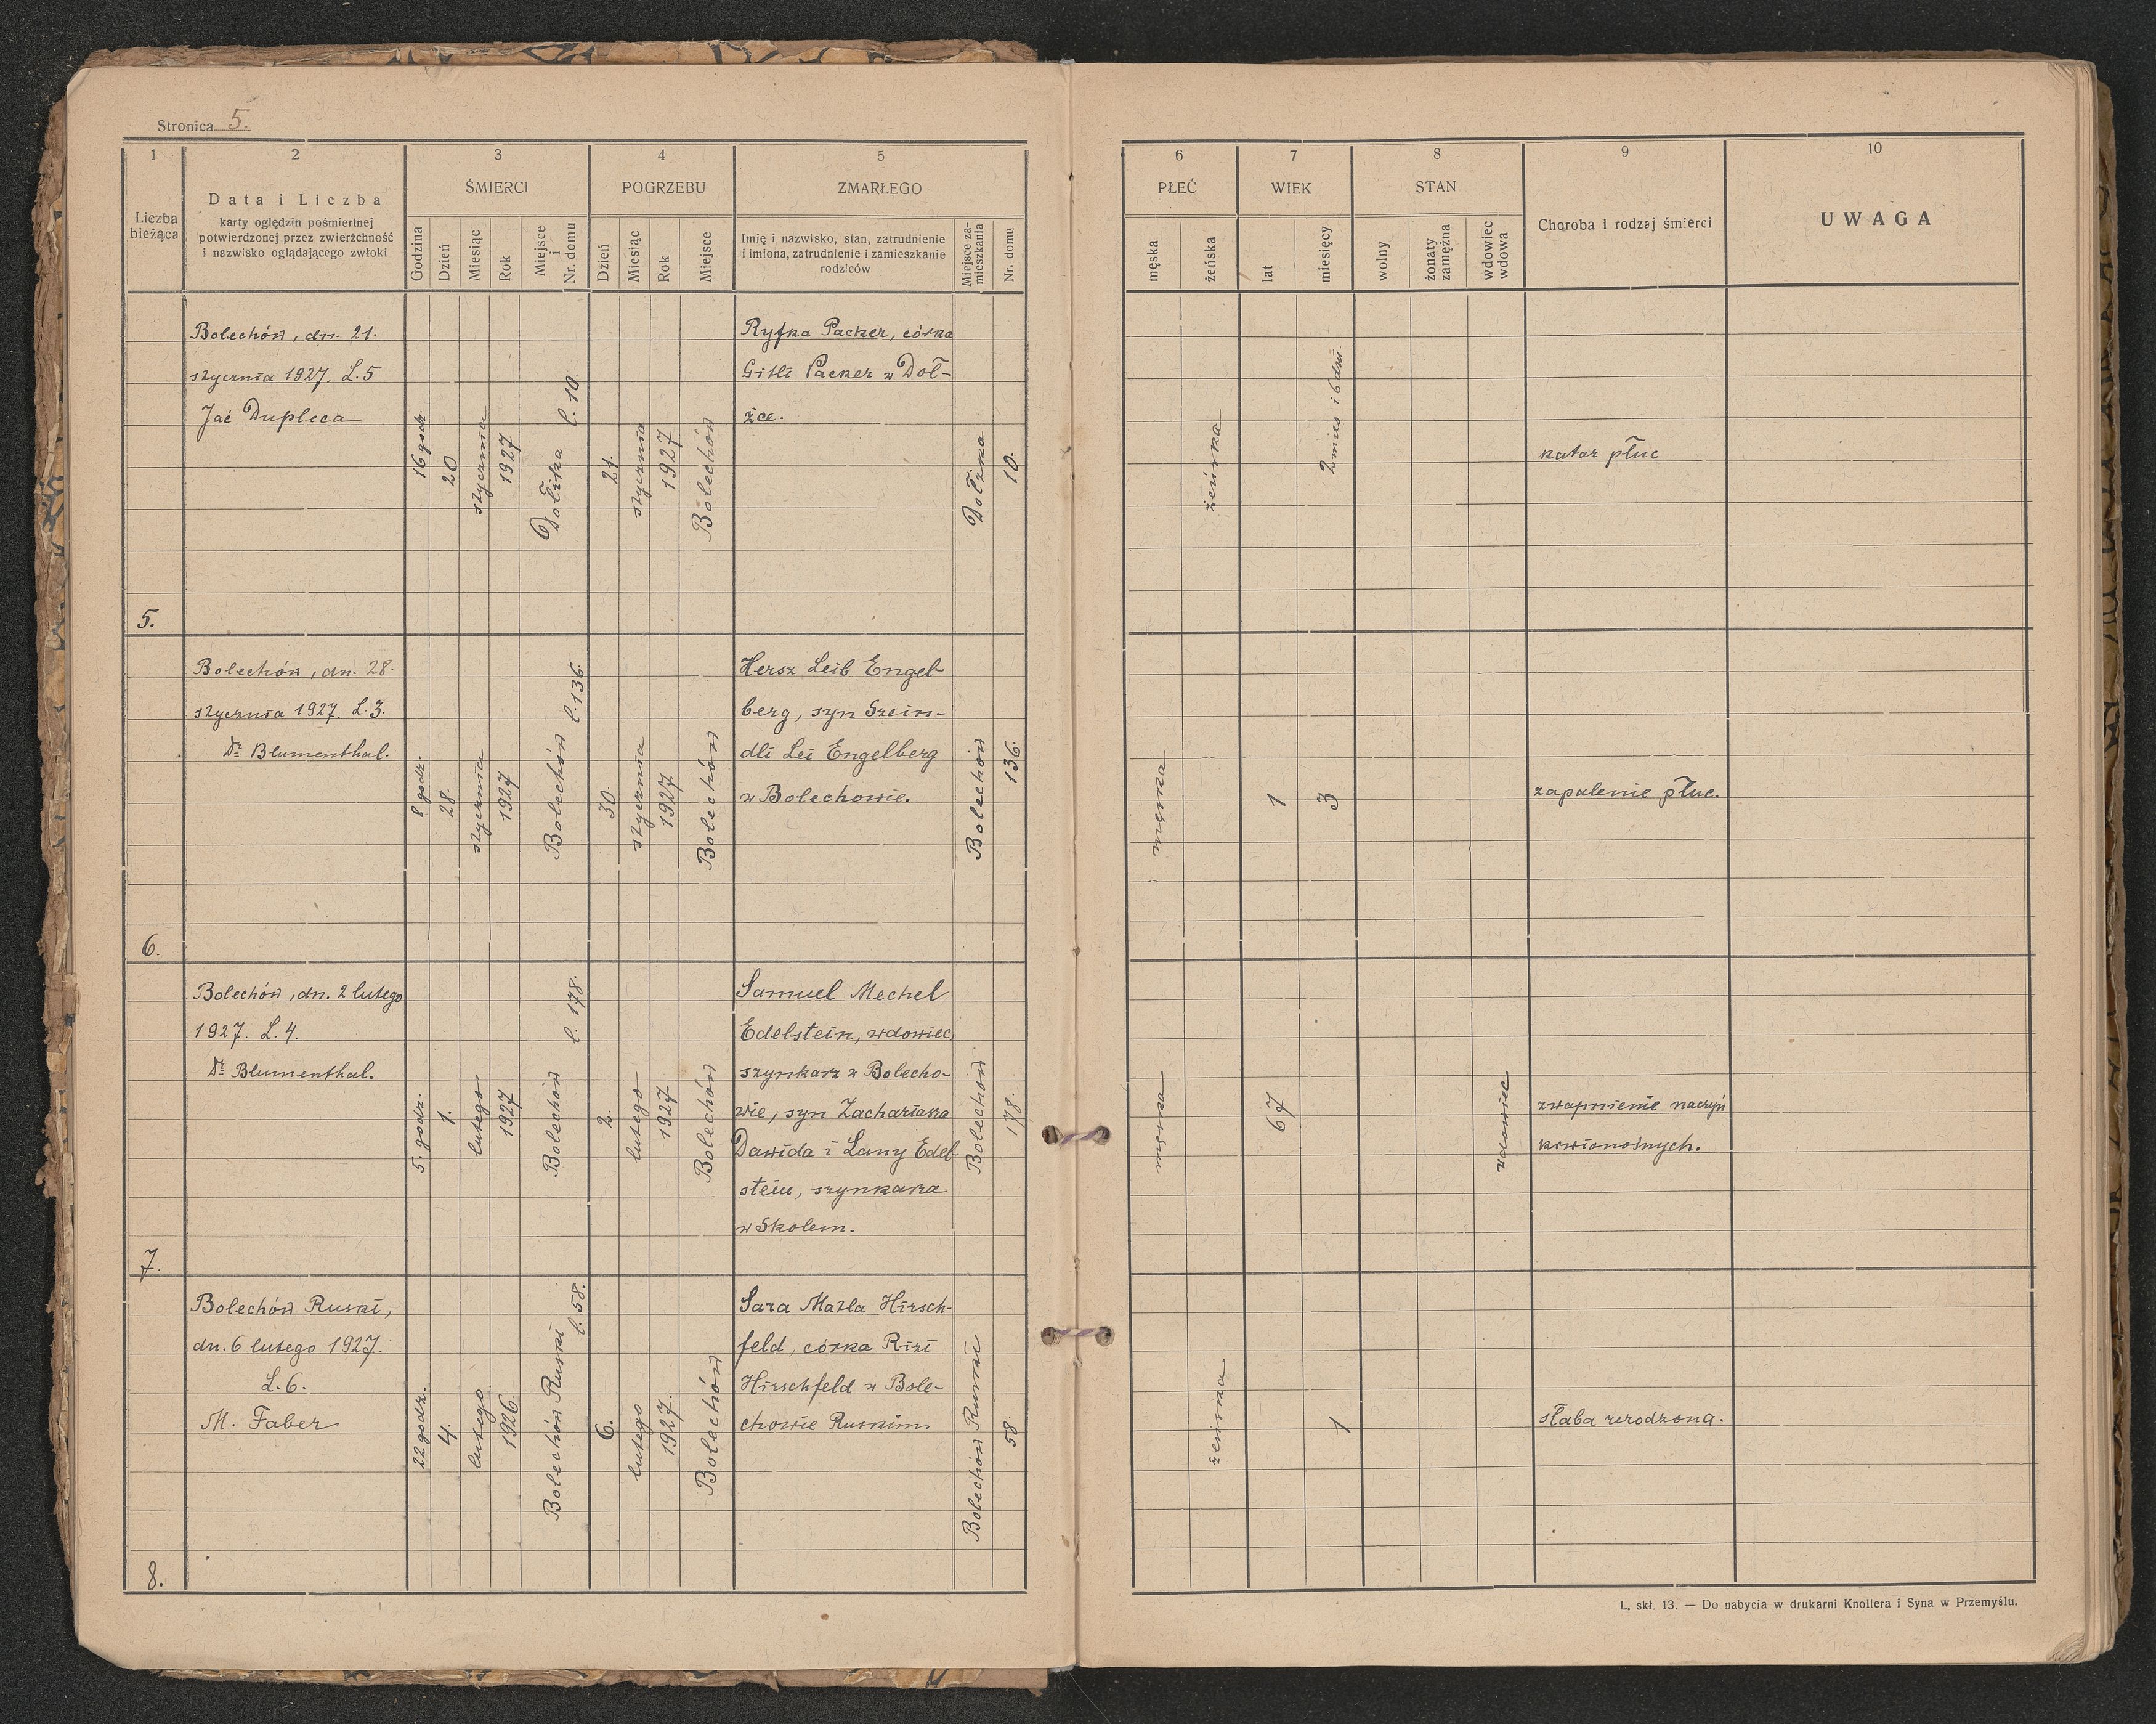 Stronica 5.
1
2
3
4
5
Liczba
bieżąca
Data i Liczba
karty oględzin pośmiertnej
potwierdzonej przez zwierzchność
i nazwisko oglądającego zwłoki
ŚMIERCI
Godzina
Dzień
Miesiąc
Rok
Miejsce
i
Nr. domu
POGRZEBU
Dzień
Miesiąc
Rok
Miejsce
ZMARŁEGO
Imię i nazwisko, stan, zatrudnienie
i imiona, zatrudnienie i zamieszkanie
rodziców
Miejsce za-
mieszkania
Nr. domu
6
7
8
9
10
PŁEĆ
męska
żeńska
WIEK
lat
miesięcy
STAN
wolny
żonaty
zamężna
wdowiec
wdowa
Choroba i rodzaj śmierci
UWAGA
5.
Bolechów, dn. 21.
stycznia 1927. L. 5
Jać Dupleca
16 godz.
20
stycznia
1927
Dołżka l. 10.
21.
stycznia
1927
Bolechów
Ryfka Packer, córka
Gitli Packer w Doł-
żce.
Dołżka
10.
żeńska
2 mies i 6 dni.
katar płuc
6.
Bolechów, dn. 28.
stycznia 1927. L. 3.
Dr Blumenthal.
8 godz.
28.
stycznia
1927
Bolechów l. 136.
30.
stycznia
1927
Bolechów
Hersz Leib Engel-
berg, syn Szein-
dli Lei Engelberg
w Bolechowie.
Bolechów
136.
męska
1
3
zapalenie płuc.
7.
Bolechów, dn. 2 lutego
1927. L. 4.
Dr Blumenthal.
5. godz.
1.
lutego
1927
Bolechów l. 178.
2.
lutego
1927
Bolechów
Samuel Mechel
Edelstein, wdowiec,
szynkarz w Bolecho-
wie, syn Zachariasza
Dawida i Lany Edel-
stein, szynkarza
w Skolem.
Bolechów
178.
męska
67
wdowiec
zwapnienie naczyń
krwionośnych.
8.
Bolechów Ruski,
dn. 6 lutego 1927.
L. 6.
M. Faber
22 godz.
4.
lutego
1926.
Bolechów Ruski
l. 58.
6.
lutego
1927.
Bolechów
Sara Matla Hirsch-
feld, córka Rizi
Hirschfeld w Bole-
chowie Ruskim
Bolechów Ruski
58.
żeńska
1
słaba urodzona.
L. skł. 13. — Do nabycia w drukarni Knollera i Syna w Przemyślu.